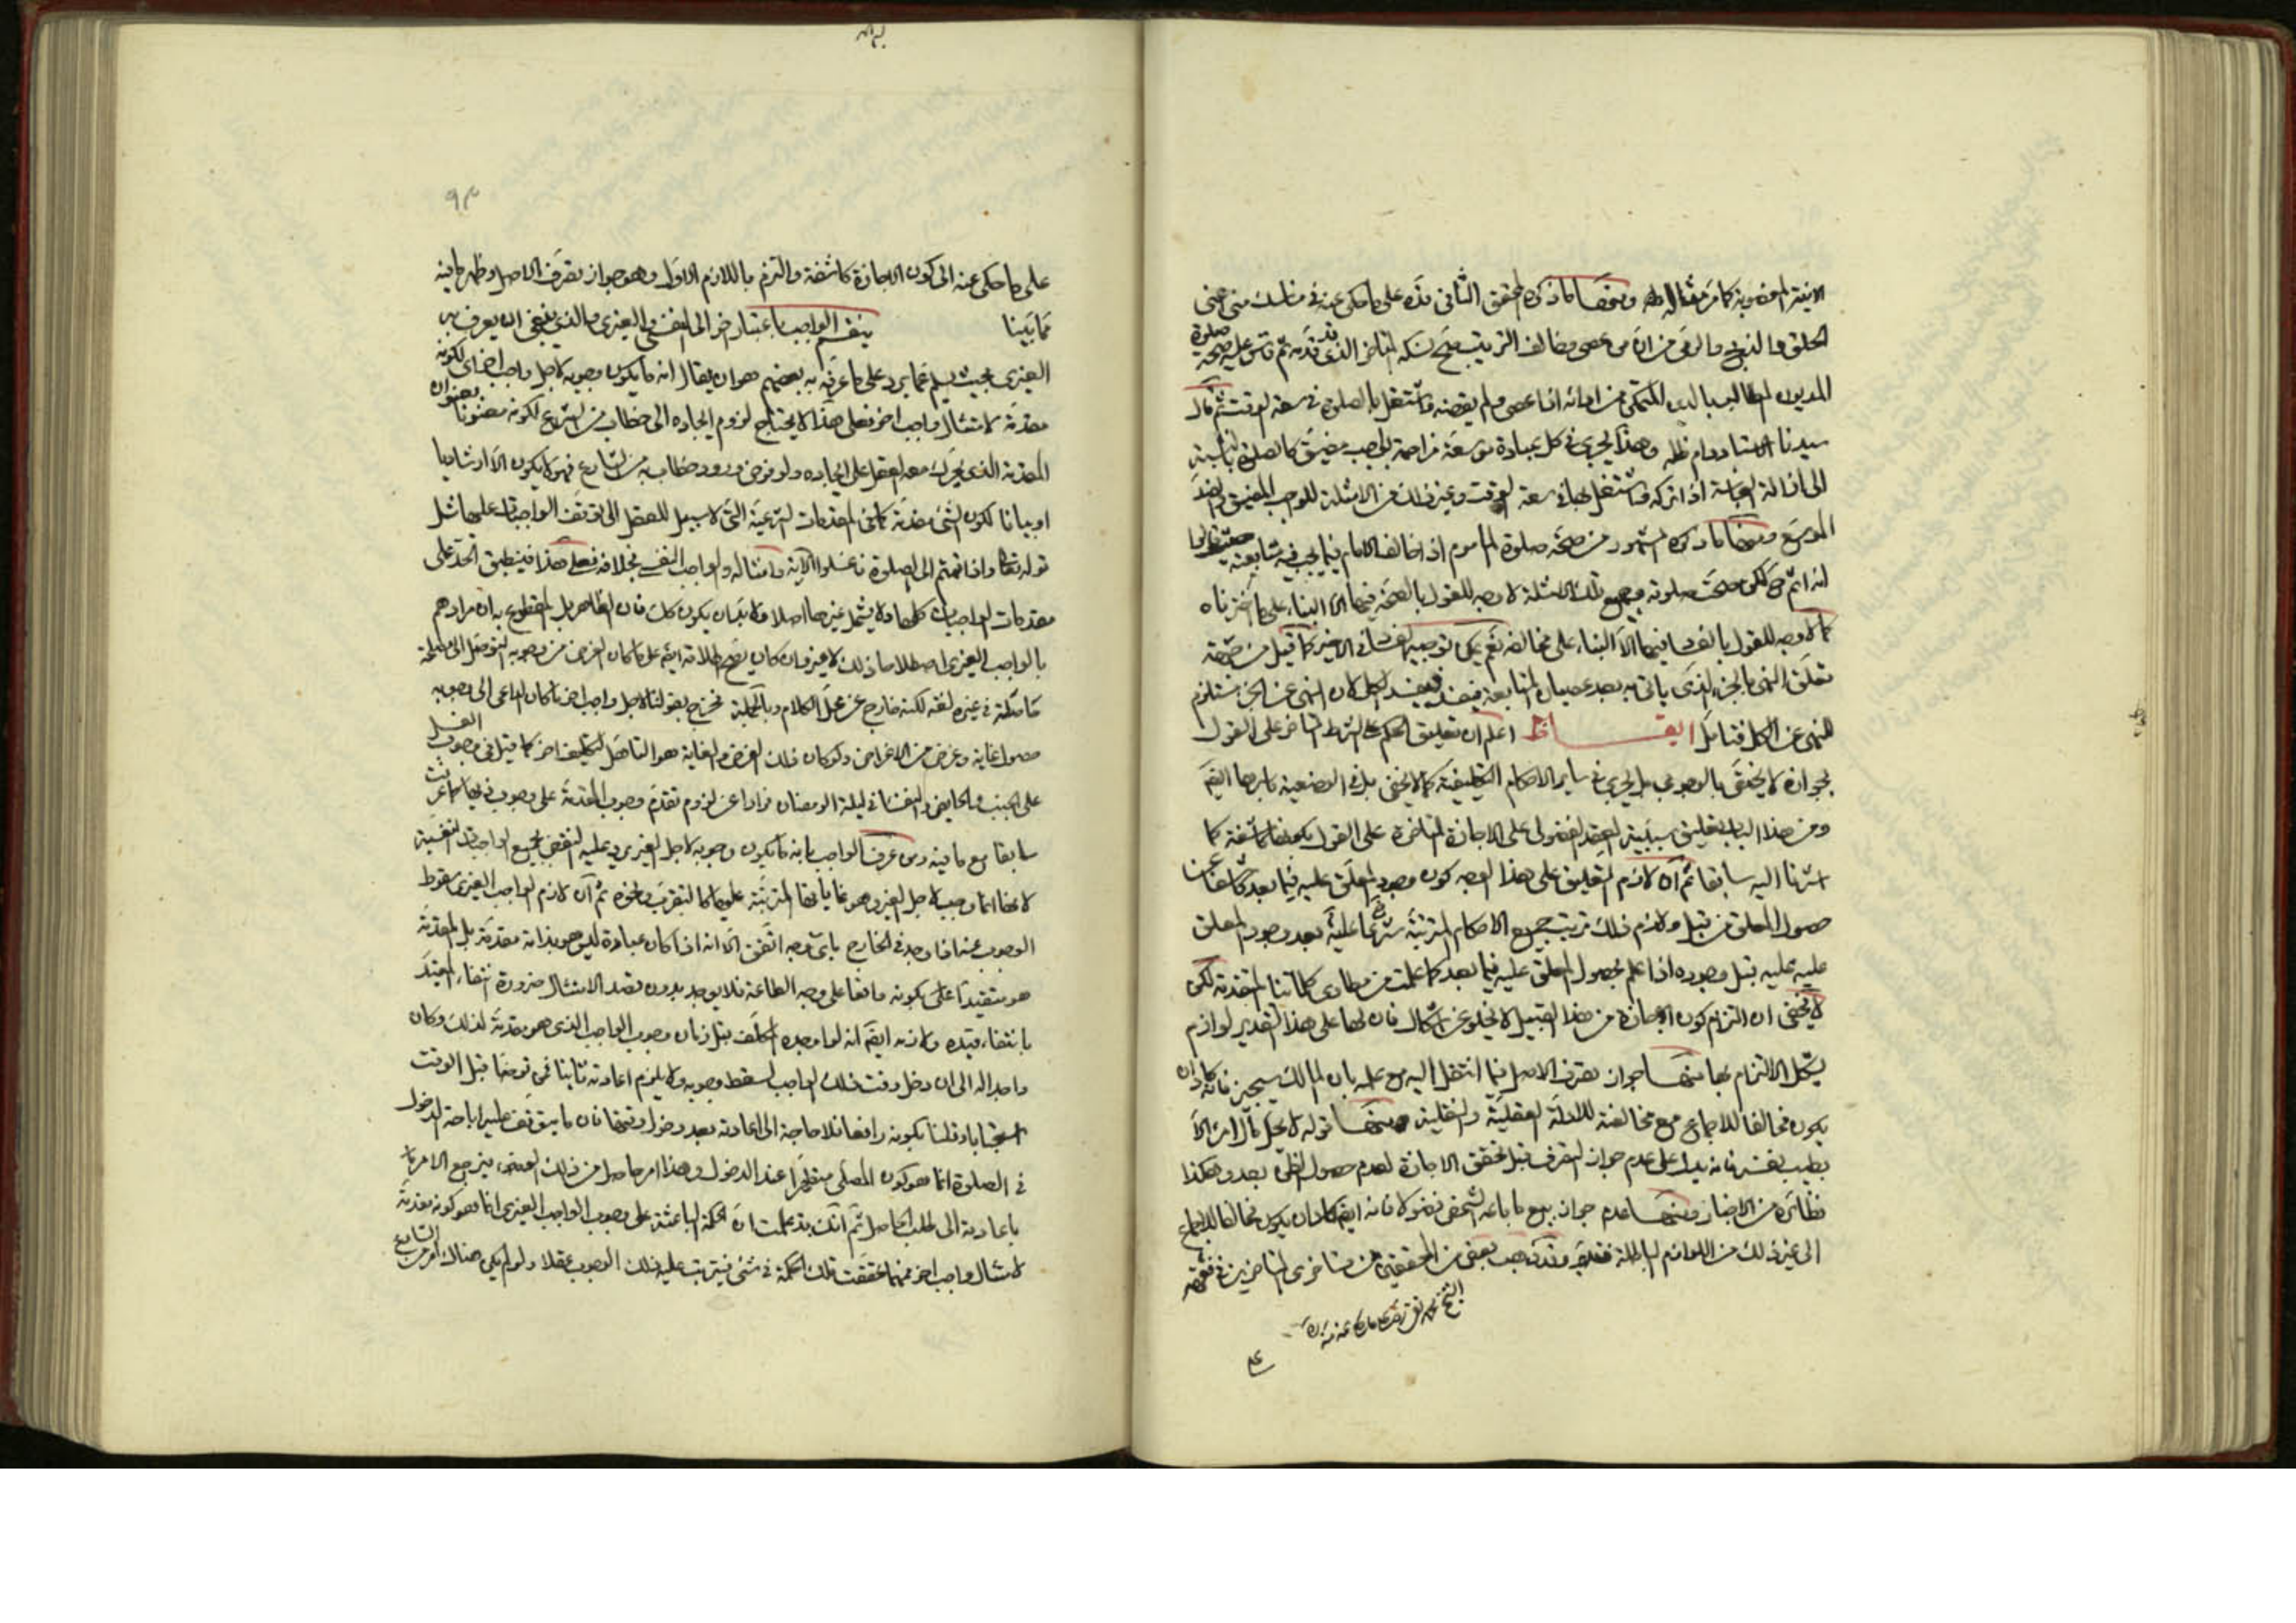 الآنية المغصوبة كما مر مثاله ومنها ما ذكره المحقق الثاني قده على ما حكي عنه في مناسك منى اعنى
الحلق والذبح والرمي من ان من عصى وخالف الترتيب صح نسكه المتأخر الذي قدمه ثم قاس عليه صحة صلوة
المديون المطالب بالدين المتمكن من ادائه اذا عصى ولم يقضه واشتغل بالصلوة في سعة الوقت ثم قال
سيدنا الاستاد دام ظله وهذا يجري في كل عبادة موسعة مزاحمة بواجب مضيق كالصلوة بالنسبة
الى ازالة النجاسة اذا تركه واشتغل بها في سعة الوقت وغير ذلك من الامثلة للواجب المضيق والضد
الموسع ومنها ما ذكره المشهور من صحة صلوة الماموم اذا خالف الامام فيما يجب فيه متابعته حيث قالوا
انه اثم لكن صحت صلوته وجميع تلك الامثلة لا وجه للقول بالصحة فيها الا البناء على ما اخترناه
كما لا وجه للقول بالفساد فيها الا البناء على مخالفه نعم يمكن توجيه الفساد في الاخير كما قيل من جهة
تعلق النهي بالجزء الذي ياتي به بعد عصيان المتابعة فيفسد فيفسد الكل لان النهي عن الجزء يستلزم
النهي عن الكل فتأمل ايقاظ اعلم ان تعليق الحكم على الشرط المتأخر على القول
بجوازه لا يختص بالوجوب بل يجري في ساير الاحكام التكليفية كما لا يخفى بل في الوضعية باسرها ايضا
ومن هذا الباب تعليق سببية العقد الفضولي على الاجازة المتاخرة على القول بكونها كاشفة كما
اشرنا اليه سابقا ثم ان لازم التعليق على هذا الوجه كون وجود المعلق عليه فيما بعد كاشفا عن
حصول المعلق من قبل ولازم ذلك ترتيب جميع الاحكام المترتبة شرعا عليه بعد وجود المعلق
عليه عليه قبل وجوده اذا علم بحصول المعلق عليه فيما بعد كما علمت من مطاوي كلماتنا المتقدمة لكن
لا يخفى ان التزام كون الاجازة من هذا القبيل لا يخلو عن اشكال فان لها على هذا التقدير لوازم
يشكل الالتزام بها منها جواز تصرف الاصيل فيما انتقل اليه مع علمه بان المالك سيجيز فانه كاد ان
يكون مخالفا للاجماع مع مخالفته للادلة العقلية والنقلية ومنها قوله لا يحل مال امرء الا
بطيب نفسه فانه يدل على عدم جواز التصرف قبل تحقق الاجازة لعدم حصول الطيب بعد وهكذا
نظائره من الاخبار ومنها عدم جواز بيع ما باعه الشخص فضولا فانه ايضا كاد ان يكون مخالفا للاجماع
الى غير ذلك من اللوازم الباطلة وقد ذهب بعض من المحققين من متأخري المتأخرين في فقهه
الشيخ محمد تقي
على ما حكي عنه الى كون الاجازة كاشفة والتزم باللازم الاول وهو جواز تصرف الاصيل وظهر ما فيه
مما بينا ينقسم الواجب باعتبار آخر الى النفسي والغيري والذي ينبغي ان يعرف به
الغيري بحيث يسلم عما يرد على ما عرفه به بعضهم هو ان يقال انه ما يكون وجوبه لاجل واجب آخر اي لكونه
مقدمة لامتثال واجب اخر فعلى هذا لا يحتاج لزوم ايجاده الى خطاب من الشرع لكونه معنونا بعنوان
المقدمة الذي يحرك معه العقل على ايجاده ولو فرض ورود خطاب به من الشارع فهو لا يكون الا ارشاديا
او بيانا لكون الشيء مقدمة كما في المقدمات الشرعية التي لا سبيل للعقل الى توقف الواجبات عليها مثل
قوله تعالى واذا قمتم الى الصلوة فاغسلوا الآية وامثاله والواجب النفسي بخلافه فعلى هذا فينطبق الحد على
مقدمات الواجبات كلها ولا يشمل غيرها اصلا ولا بد ان يكون كك فان الظاهر بل المقطوع به ان مرادهم
بالواجب الغيري اصطلاحا ذلك لا غير وان كان يصح اطلاقه ايضا على ما كان الغرض من وجوبه التوصل الى مصلحة
حاصلة في غيره لغة لكنه خارج عن محل الكلام وبالجملة فخرج بقولنا لاجل واجب اخر ما كان الداعي الى وجوبه
حصول غاية وغرض من الاغراض ولو كان ذلك الغرض والغاية هو التاهل لتكليف اخر كما قيل في وجوب الغسل
على الجنب والحايض والنفساء في ليلة الرمضان فرارا عن لزوم تقدم وجوب المقدمة على وجوب ذيها كما عرفت
سابقا مع ما فيه ومن عرف الواجب بانه ما يكون وجوبه لاجل الغير يرد عليه النقض بجميع الواجبات النفسية
لانها انما وجبت لاجل الغير وهو غاياتها المترتبة عليها كالتقرب ونحوه ثم ان لازم الواجب الغيري سقوط
الوجوب عنه اذا وجد في الخارج باي وجه اتفق الا انه اذا كان عبادة ليس هو بذاته مقدمة بل المقدمة
هو مقيدا على كونه واقعا على وجه الطاعة فلا يوجد بدون قصد الامتثال ضرورة انتفاء المقيد
بانتفاء قيده ولازمه ايضا انه لو اوجده المكلف قبل زمان وجوب الواجب الذي هو مقدمة لذلك وكان
واجدا له الى ان دخل وقت ذلك الواجب لسقط وجوبه ولا يلزم اعادته ثانيا فمن توضأ قبل الوقت
استحبابا وقلنا بكونه رافعا فلا حاجة الى اعادته بعد دخول وقتها فان ما يتوقف عليه اباحة الدخول
في الصلوة انما هو كون المصلي متطهرا عند الدخول وهذا امر حاصل من ذلك الوضوء فيرجع الامر
باعادته الى طلب الحاصل ثم انك قد علمت ان الحكمة الباعثة على وجوب الواجب الغيري انما هو كونه مقدمة
لامتثال واجب اخر فمهما تحققت تلك الحكمة في شيء فيترتب عليه ذلك الوجوب عقلا ولو لم يكن هناك امر من الشارع